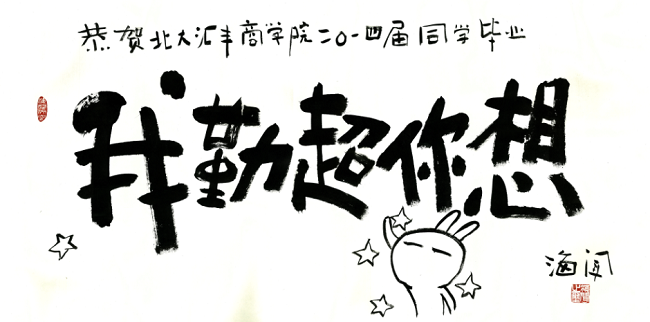 恭贺北大汇丰商学院二〇一四届同学毕业
我勤超你想
海闻